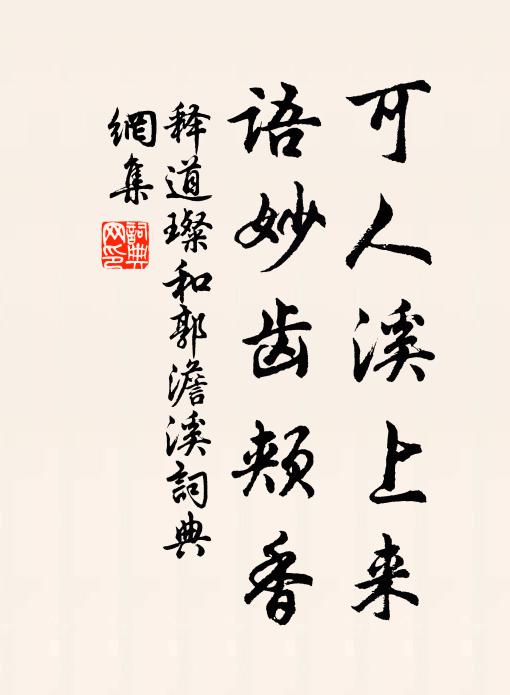 可人溪上来
语妙齿颊香
释道璨和郭澹溪詞典
網集
詞典
网印